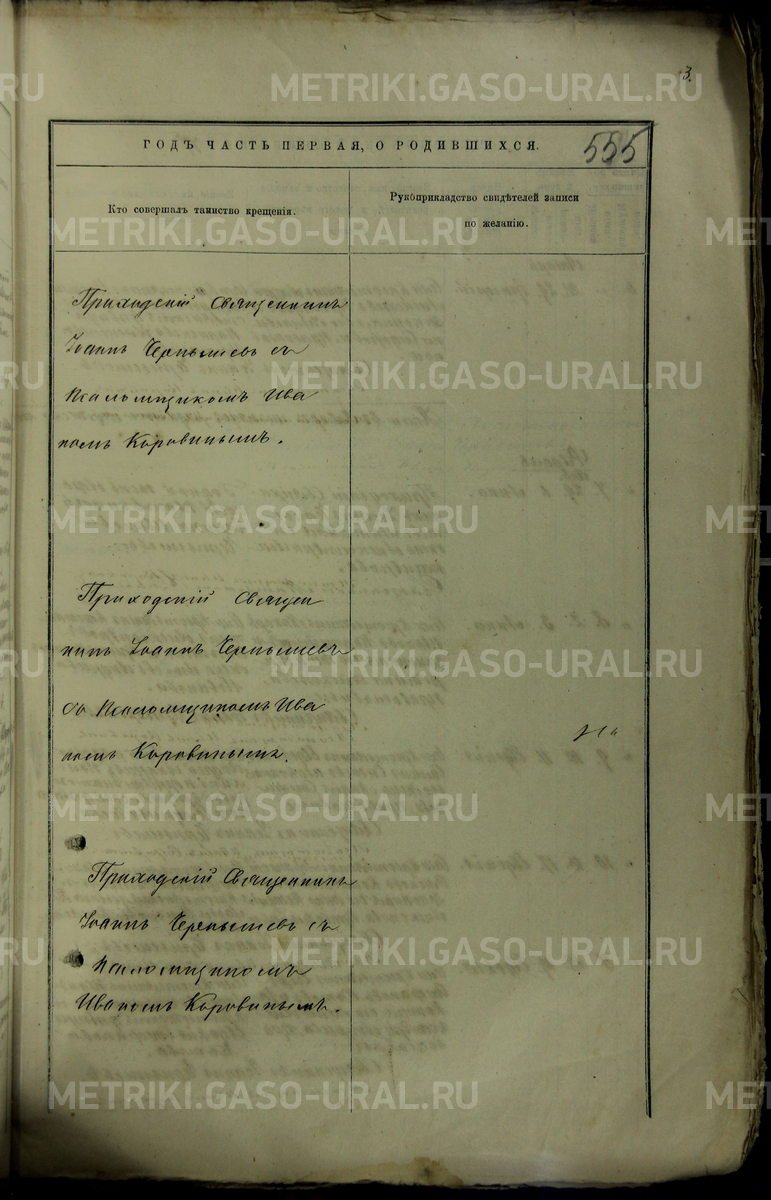 3.
ГОДЪ ЧАСТЬ ПЕРВАЯ, О РОДИВШИХСЯ.
555
Кто совершалъ таинство крещенія.
Рукоприкладство свидѣтелей записи
по желанію.
Приходскій Священникъ
Іоаннъ Чернышевъ съ
Псаломщикомъ Ива
номъ Коровинымъ.
Приходскій Священ
никъ Іоаннъ Чернышевъ
со Псаломщикомъ Ива
номъ Коровинымъ.
Приходскій Священникъ
Іоаннъ Чернышевъ съ
Псаломщикомъ
Иваномъ Коровинымъ.
METRIKI.GASO-URAL.RU